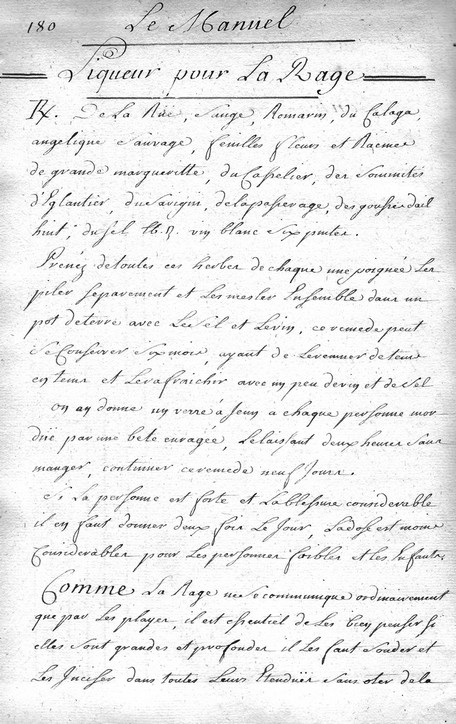 180 Le Manuel
Liqueur pour La Rage
Rx. De La Rüe, Sauge, Romarin, du Calaga
angelique Sauvage, feuilles fleurs et Racines
de grande margueritte, du Casselier, des Sommités
d'Eglantier, du Savigin, delapasserage, des gousses dail
huit, du sel vin blanc Six pintes.
Prenéz detoutes ces herbes de chaque une poignée Les
piler Séparement et Les mesler Ensemble dans un
pot deterre avec Le Sel et Levin, ce remede peut
Se Conserver Six mois, ayant de Leremuer detems
en tems et Lerafraichir avec un peu devin et de Sel
on en donne un verre à Jeun a chaque personne mor
düe par une bete enragée, Lelaissant deux heures Sans
manger, continuer ceremede neuf Jours.
Si La personne est forte et Lablessure considerable
il en faut donner deux fois Le Jour, Ladose est moins
Considerables pour Les personnes foibles et les Enfants.
Comme La Rage ne Se communique ordinairement
que par Les playes, il est essentiel de Les bien penser Si
elles Sont grandes et profondes il Les faut Sonder et
Les Inciser dans toutes Leurs Etendües Sans oter dela